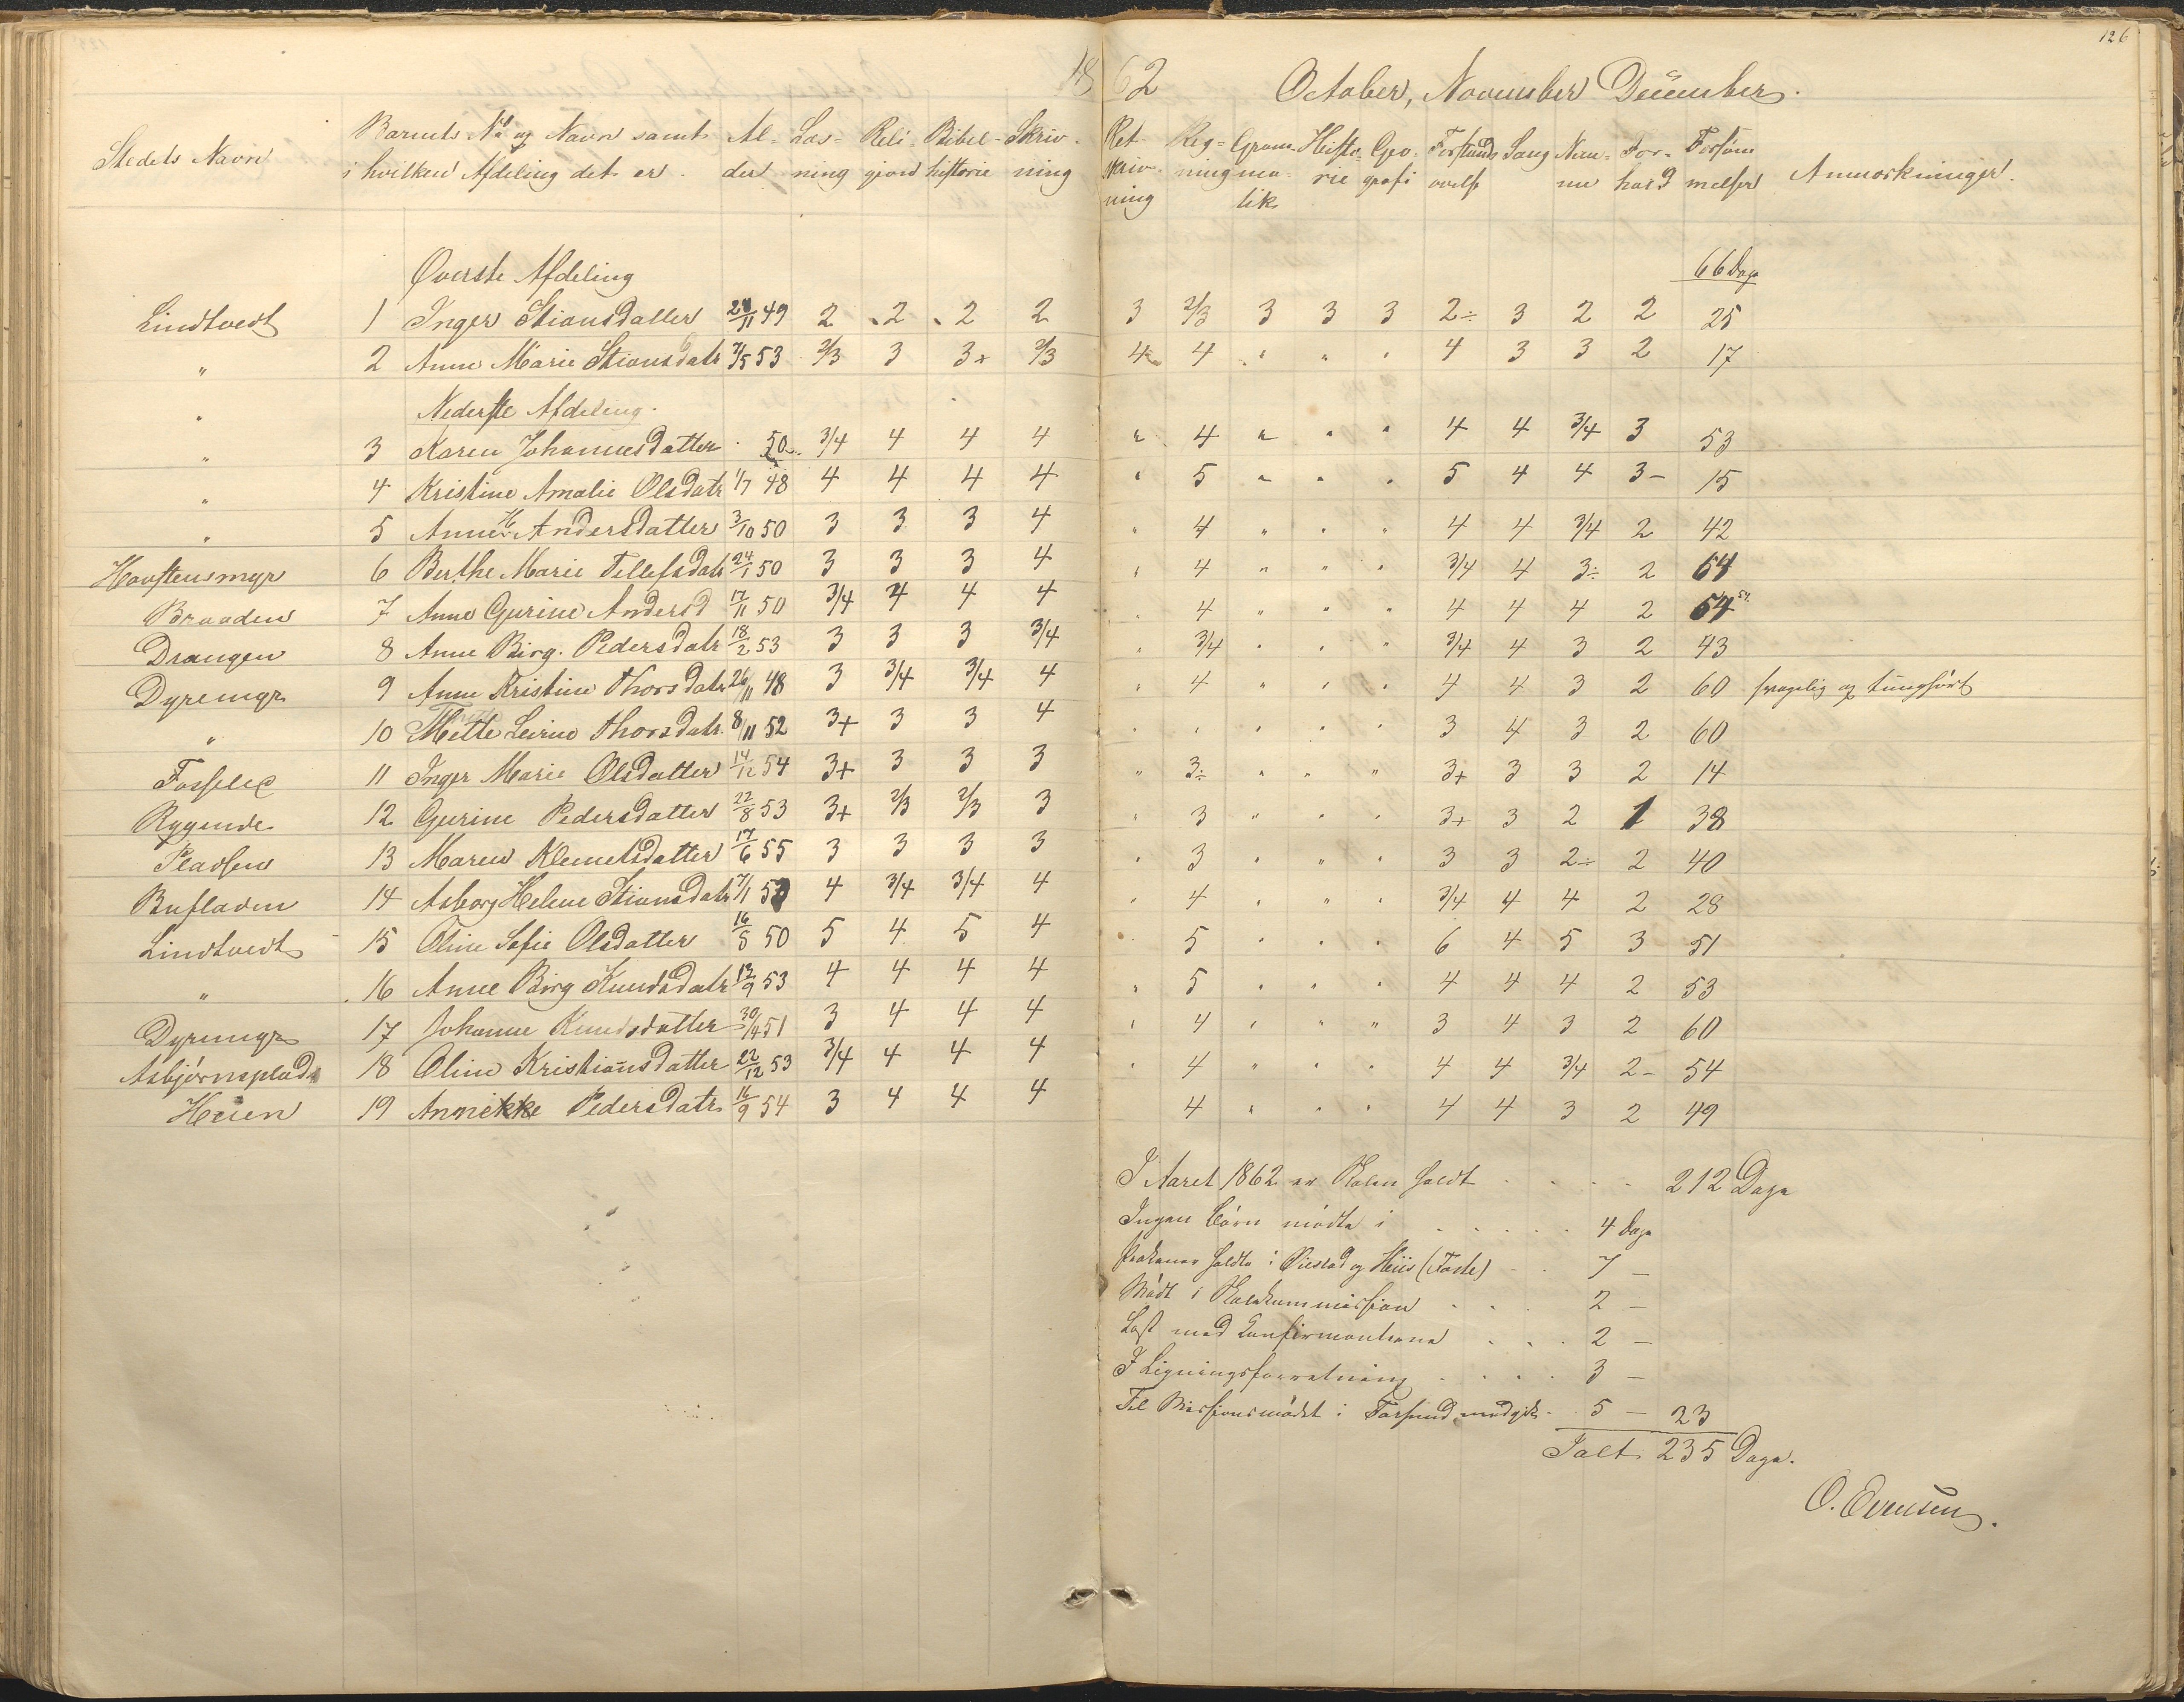 126
1862 October, November December.
Stedets Navn
Barnets No og Navn samt i hvilken Afdeling det er.
Al- der
Læs- ning
Reli- gion
Bibel- historie
Skriv- ning
Ret- skriv- ning
Reg- ning
Gram- ma- tik
Histo- rie
Geo- grafi
Forstands øvelse
Sang
Nem- me
For- hold
Forsøm- melser
Anmærkninger.
Øverste Afdeling 66 Dage
Lindtvedt 1 Inger Stiansdatter 28/11 49 2 2 2 2 3 2/3 3 3 3 2÷ 3 2 2 25
" 2 Anne Marie Stiansdatr 7/5 53 2/3 3 3+ 2/3 4 4 " " " 4 3 3 2 17
" Nederste Afdeling.
" 3 Karen Johannesdatter 50 3/4 4 4 4 " 4 " " " 4 4 3/4 3 53
" 4 Kristine Amalie Olsdatr 1/7 48 4 4 4 4 " 5 " " " 5 4 4 3- 15
" 5 Anne H. Andersdatter 3/10 50 3 3 3 4 " 4 " " " 4 4 3/4 2 42
Havstensmyr 6 Berthe Marie Tellefsdatr 24/1 50 3 3 3 4 " 4 " " " 3/4 4 3÷ 2 64
Braaden 7 Anne Gurine Andersd 17/11 50 3/4 4 4 4 " 4 " " " 4 4 4 2 54 54.
Drangen 8 Anne Birg. Pedersdatr 18/2 53 3 3 3 3/4 " 3/4 " " " 3/4 4 3 2 43
Dyremyr 9 Anne Kristine Thorsdatr 26/11 48 3 3/4 3/4 4 " 4 " " " 4 4 3 2 60 svagelig og tunghørt
" 10 Mette Leirine Thorsdatr. 8/11 52 3+ 3 3 4 " " " " " 3 4 3 2 60
11 Inger Marie Olsdatter 14/12 54 3+ 3 3 3 " 3÷ " " " 3+ 3 3 2 14
Rygende 12 Gurine Pedersdatter 22/8 53 3+ 2/3 2/3 3 " 3 " " " 3+ 3 2 1 38
Pladsen 13 Maren Klemetsdatter 17/6 55 3 3 3 3 " 3 " " " 3 3 2÷ 2 40
Buflaven 14 Asborg Helene Stiansdatr 7/1 53 4 3/4 3/4 4 " 4 " " " 3/4 4 4 2 28
Lindtvedt 15 Oline Sofie Olsdatter 16/5 50 5 4 5 4 " 5 " " " 6 4 5 3 51
" 16 Anne Birg Knudsdatr 12/9 53 4 4 4 4 " 5 " " " 4 4 4 2 53
Dyremyr 17 Johanne Knudsdatter 30/4 51 3 4 4 4 " 4 " " " 3 4 3 2 60
Asbjørnsplads 18 Oline Kristiansdatter 22/12 53 3/4 4 4 4 " 4 " " " 4 4 3/4 2- 54
Heien 19 Annekke Pedersdatr 16/9 54 3 4 4 4 4 " " " 4 4 3 2 49
I Aaret 1862 er Skolen holdt 212 Dage
Ingen Børn mødte i 4 Dage
Prøverne holdte i Øiestad og Hiis (Faste) 7 —
Mødt i Skolekommission 2 —
Læst med Konfirmanterne 2 —
I Ligningsforretning 3 —
Til Missionsmødet i Farsund medgik 5 — 23
Ialt 235 Dage.
O. Evensen.